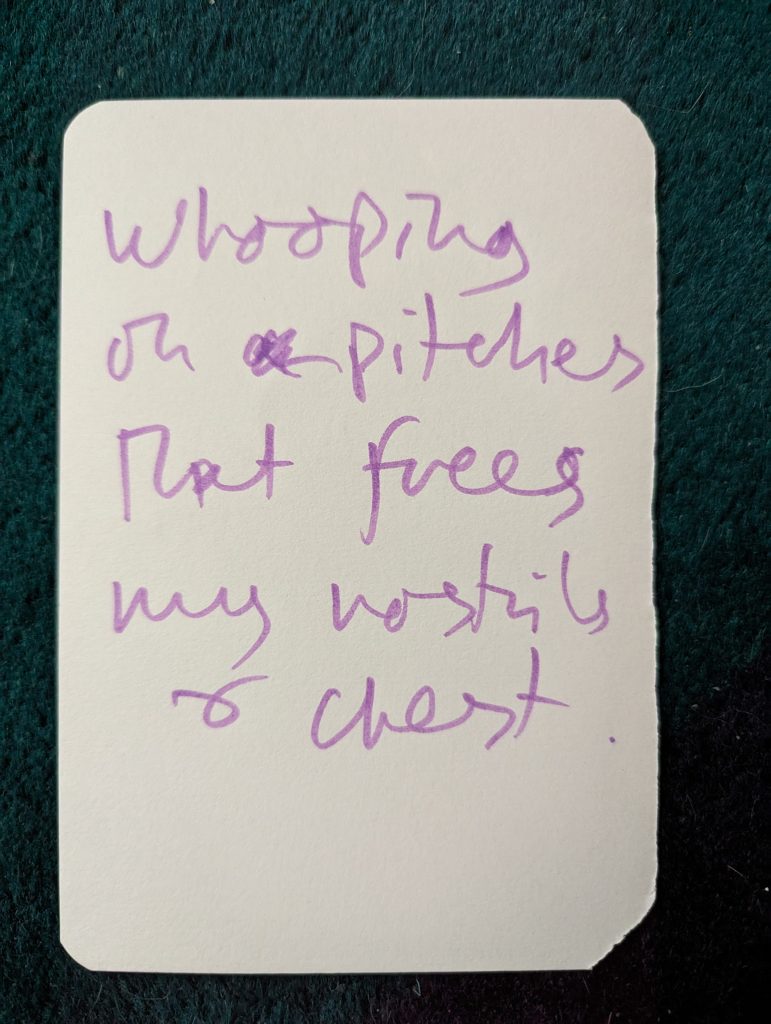 Whooping
on pitches
that frees
my nostrils
& chest.